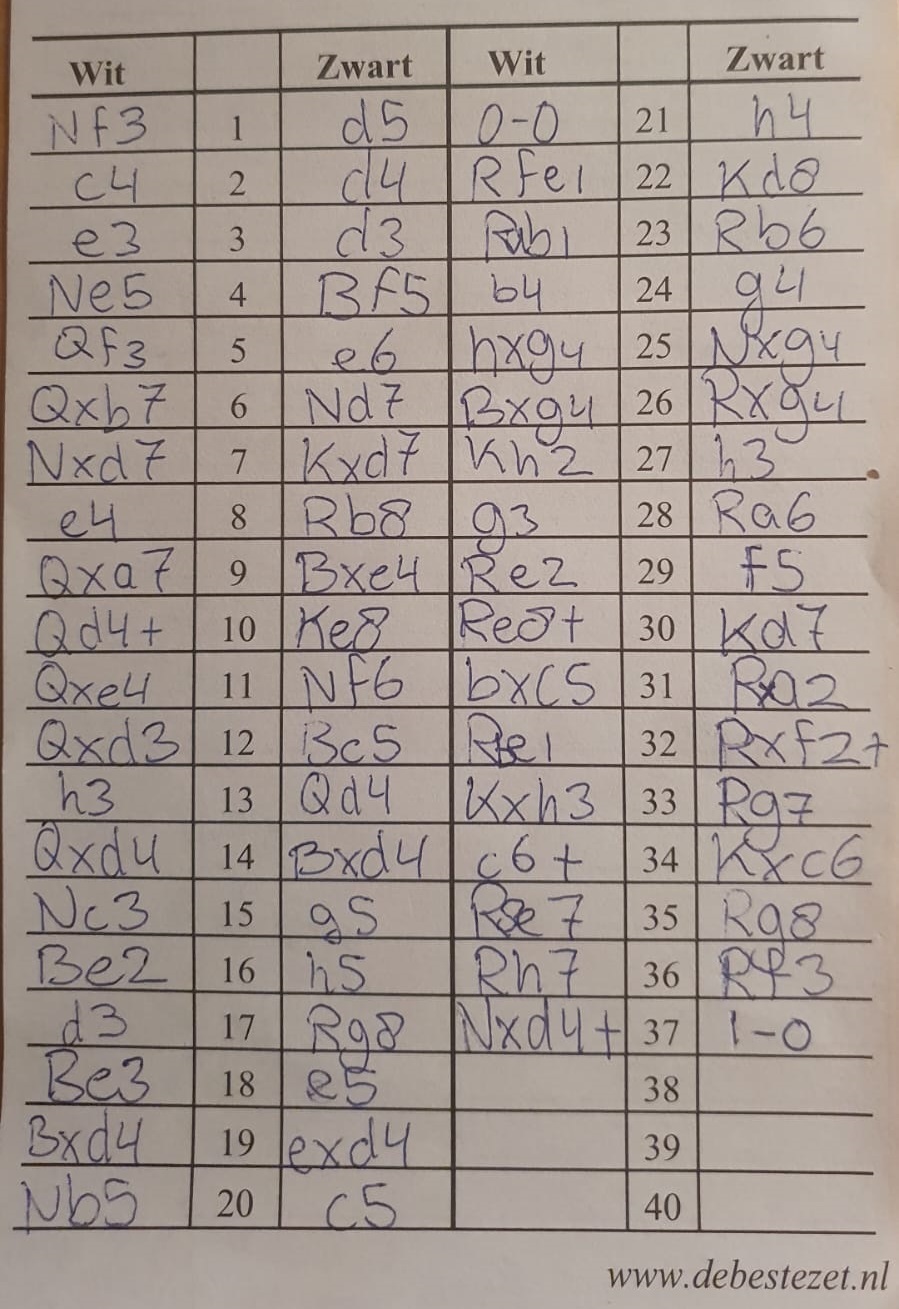 Wit Zwart Wit Zwart
Nf3 1 d5 0-0 21 h4
c4 2 d4 Rfe1 22 Kd8
e3 3 d3 Rab1 23 Rb6
Ne5 4 Bf5 b4 24 g4
Qf3 5 e6 hxg4 25 Nxg4
Qxb7 6 Nd7 Bxg4 26 Rxg4
Nxd7 7 Kxd7 Kh2 27 h3
e4 8 Rb8 g3 28 Ra6
Qxa7 9 Bxe4 Re2 29 f5
Qd4+ 10 Ke8 Re8+ 30 Kd7
Qxe4 11 Nf6 bxc5 31 Rxa2
Qxd3 12 Bc5 Rbe1 32 Rxf2+
h3 13 Qd4 Kxh3 33 Rg7
Qxd4 14 Bxd4 c6+ 34 Kxc6
Nc3 15 g5 R8e7 35 Rg8
Be2 16 h5 Rh7 36 Rf3
d3 17 Rg8 Nxd4+ 37 1-0
Be3 18 e5 38
Bxd4 19 exd4 39
Nb5 20 c5 40
www.debestezet.nl